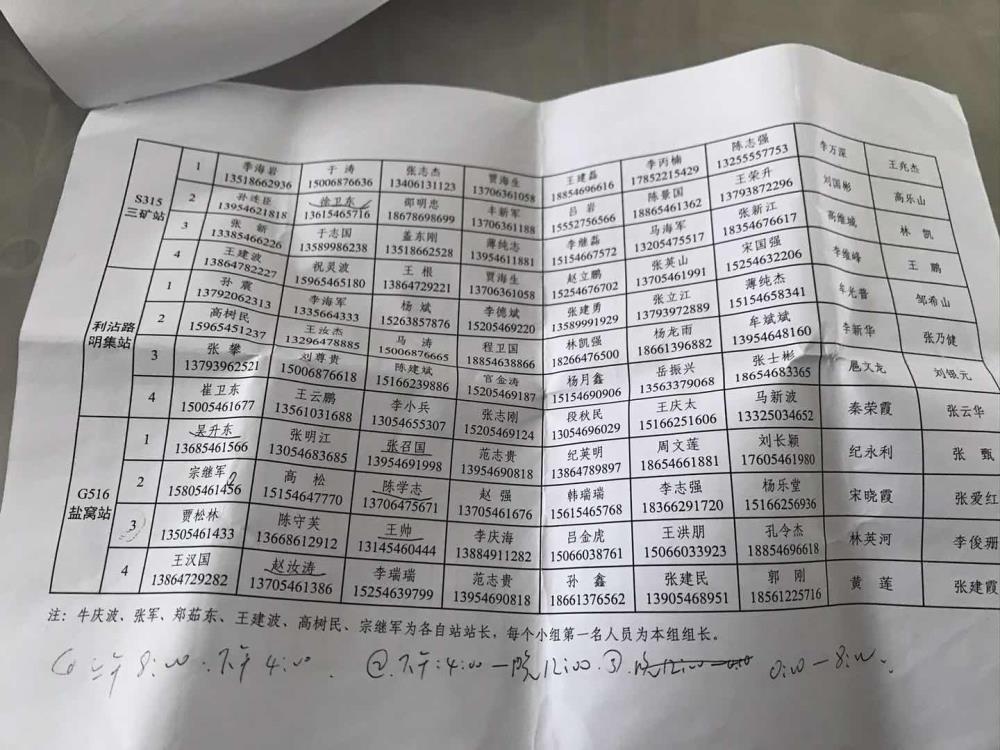 S315 三矿站
1 李海岩 13518662936 于涛 15006876636 张志杰 13406131123 贾海生 13706361058 王建磊 18854696616 李丙楠 17852215429 陈志强 13255557753 李万深 王兆杰
2 孙连臣 13954621818 徐卫东 13615465716 邵明忠 18678698699 丰新军 13706361188 吕岩 15552756566 陈景国 18865461362 王荣升 13793872296 刘国彬 高乐山
3 张新 13385466226 于志国 13589986238 盖东刚 13518662528 薄纯志 13954611881 李继磊 15154667572 马海军 13205475517 张新江 18354676617 高维城 林凯
4 王建波 13864782227 祝灵波 15965465180 王根 13864729221 贾海生 13706361058 赵立鹏 15254676702 张英山 13705461991 宋国强 15254632206 李维峰 王鹏
利沾路 明集站
1 孙震 13792062313 李海军 1335664333 杨斌 15263857876 李德斌 15205469220 张建勇 13589991929 张立江 13793972889 薄纯杰 15154658341 牟光普 邹希山
2 高树民 15965451237 王汝杰 13296478885 马涛 15006876665 程卫国 18854638866 林凯强 18266476500 杨龙雨 18661396882 牟斌斌 13954648160 李新华 张乃健
3 张攀 13793962521 刘尊贵 15006876618 陈建斌 15166239886 官金涛 15205469187 杨月鑫 15154690906 岳振兴 13563379068 张士彬 18654683365 扈文龙 刘银元
4 崔卫东 15005461677 王云鹏 13561031688 李小兵 13054655307 张志刚 15205469124 段秋民 13054696029 王庆太 15166251606 马新波 13325034652 秦荣霞 张云华
G516 盐窝站
1 吴升东 13685461566 张明江 13054683685 张召国 13954691998 范志贵 13954690818 纪英明 13864789897 周文莲 18654661881 刘长颖 17605461980 纪永利 张甄
2 宗继军 15805461456 高松 15154647770 陈学志 13706475671 赵强 13705461676 韩瑞瑞 15615465768 李志强 18366291720 杨乐堂 15166256936 宋晓霞 张爱红
3 贾松林 13505461433 陈守芙 13668612912 王帅 13145460444 李庆海 13884911282 吕金虎 15066038761 王洪朋 15066033923 孔令杰 18854696618 林英河 李俊珊
4 王汉国 13864729282 赵汝涛 13705461386 李瑞瑞 15254639799 范志贵 13954690818 孙鑫 18661376562 张建民 13905468951 郭刚 18561225716 黄莲 张建霞
注：牛庆波、张军、郑茹东、王建波、高树民、宗继军为各自站站长，每个小组第一名人员为本组组长。
① 上午8:00.下午4:00. ②.下午:4:00—晚12:00.③ 0:00—8:00.